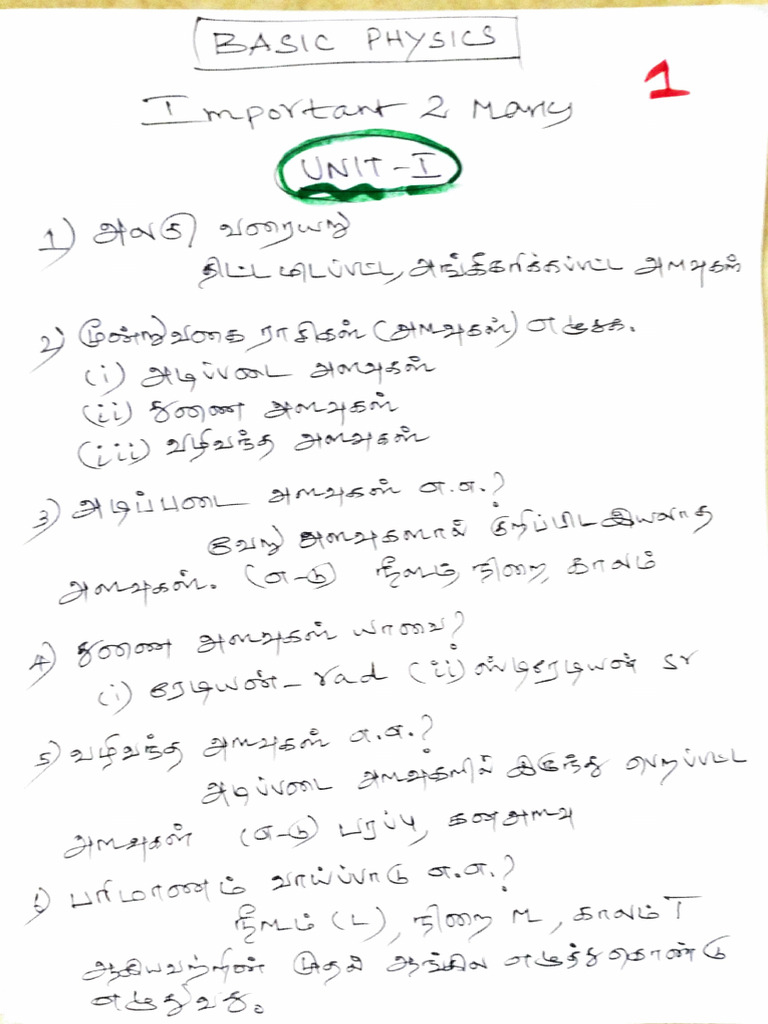 BASIC PHYSICS
1
Important 2 Mark
UNIT-I
1) அலகு வரையறு
திட்டமிடப்பட்ட, அங்கீகரிக்கப்பட்ட அளவுகள்
2) மூன்றுவகை ராசிகள் (அளவுகள்) எழுதுக.
(i) அடிப்படை அளவுகள்
(ii) துணை அளவுகள்
(iii) வழிவந்த அளவுகள்
3) அடிப்படை அளவுகள் எ.எ.?
வேறு அளவுகளால் குறிப்பிட இயலாத
அளவுகள். (எ-டு) நீளம், நிறை, காலம்
4) துணை அளவுகள் யாவை?
(i) ரேடியன் - rad (ii) ஸ்டிரேடியன் sr
5) வழிவந்த அளவுகள் எ.எ.?
அடிப்படை அளவுகளில் இருந்து பெறப்பட்ட
அளவுகள் (எ-டு) பரப்பு, கனஅளவு
6) பரிமாணம் வாய்ப்பாடு எ.எ.?
நீளம் (L), நிறை M, காலம் T
ஆகியவற்றின் முதல் ஆங்கில எழுத்துகொண்டு
எழுதுவது.